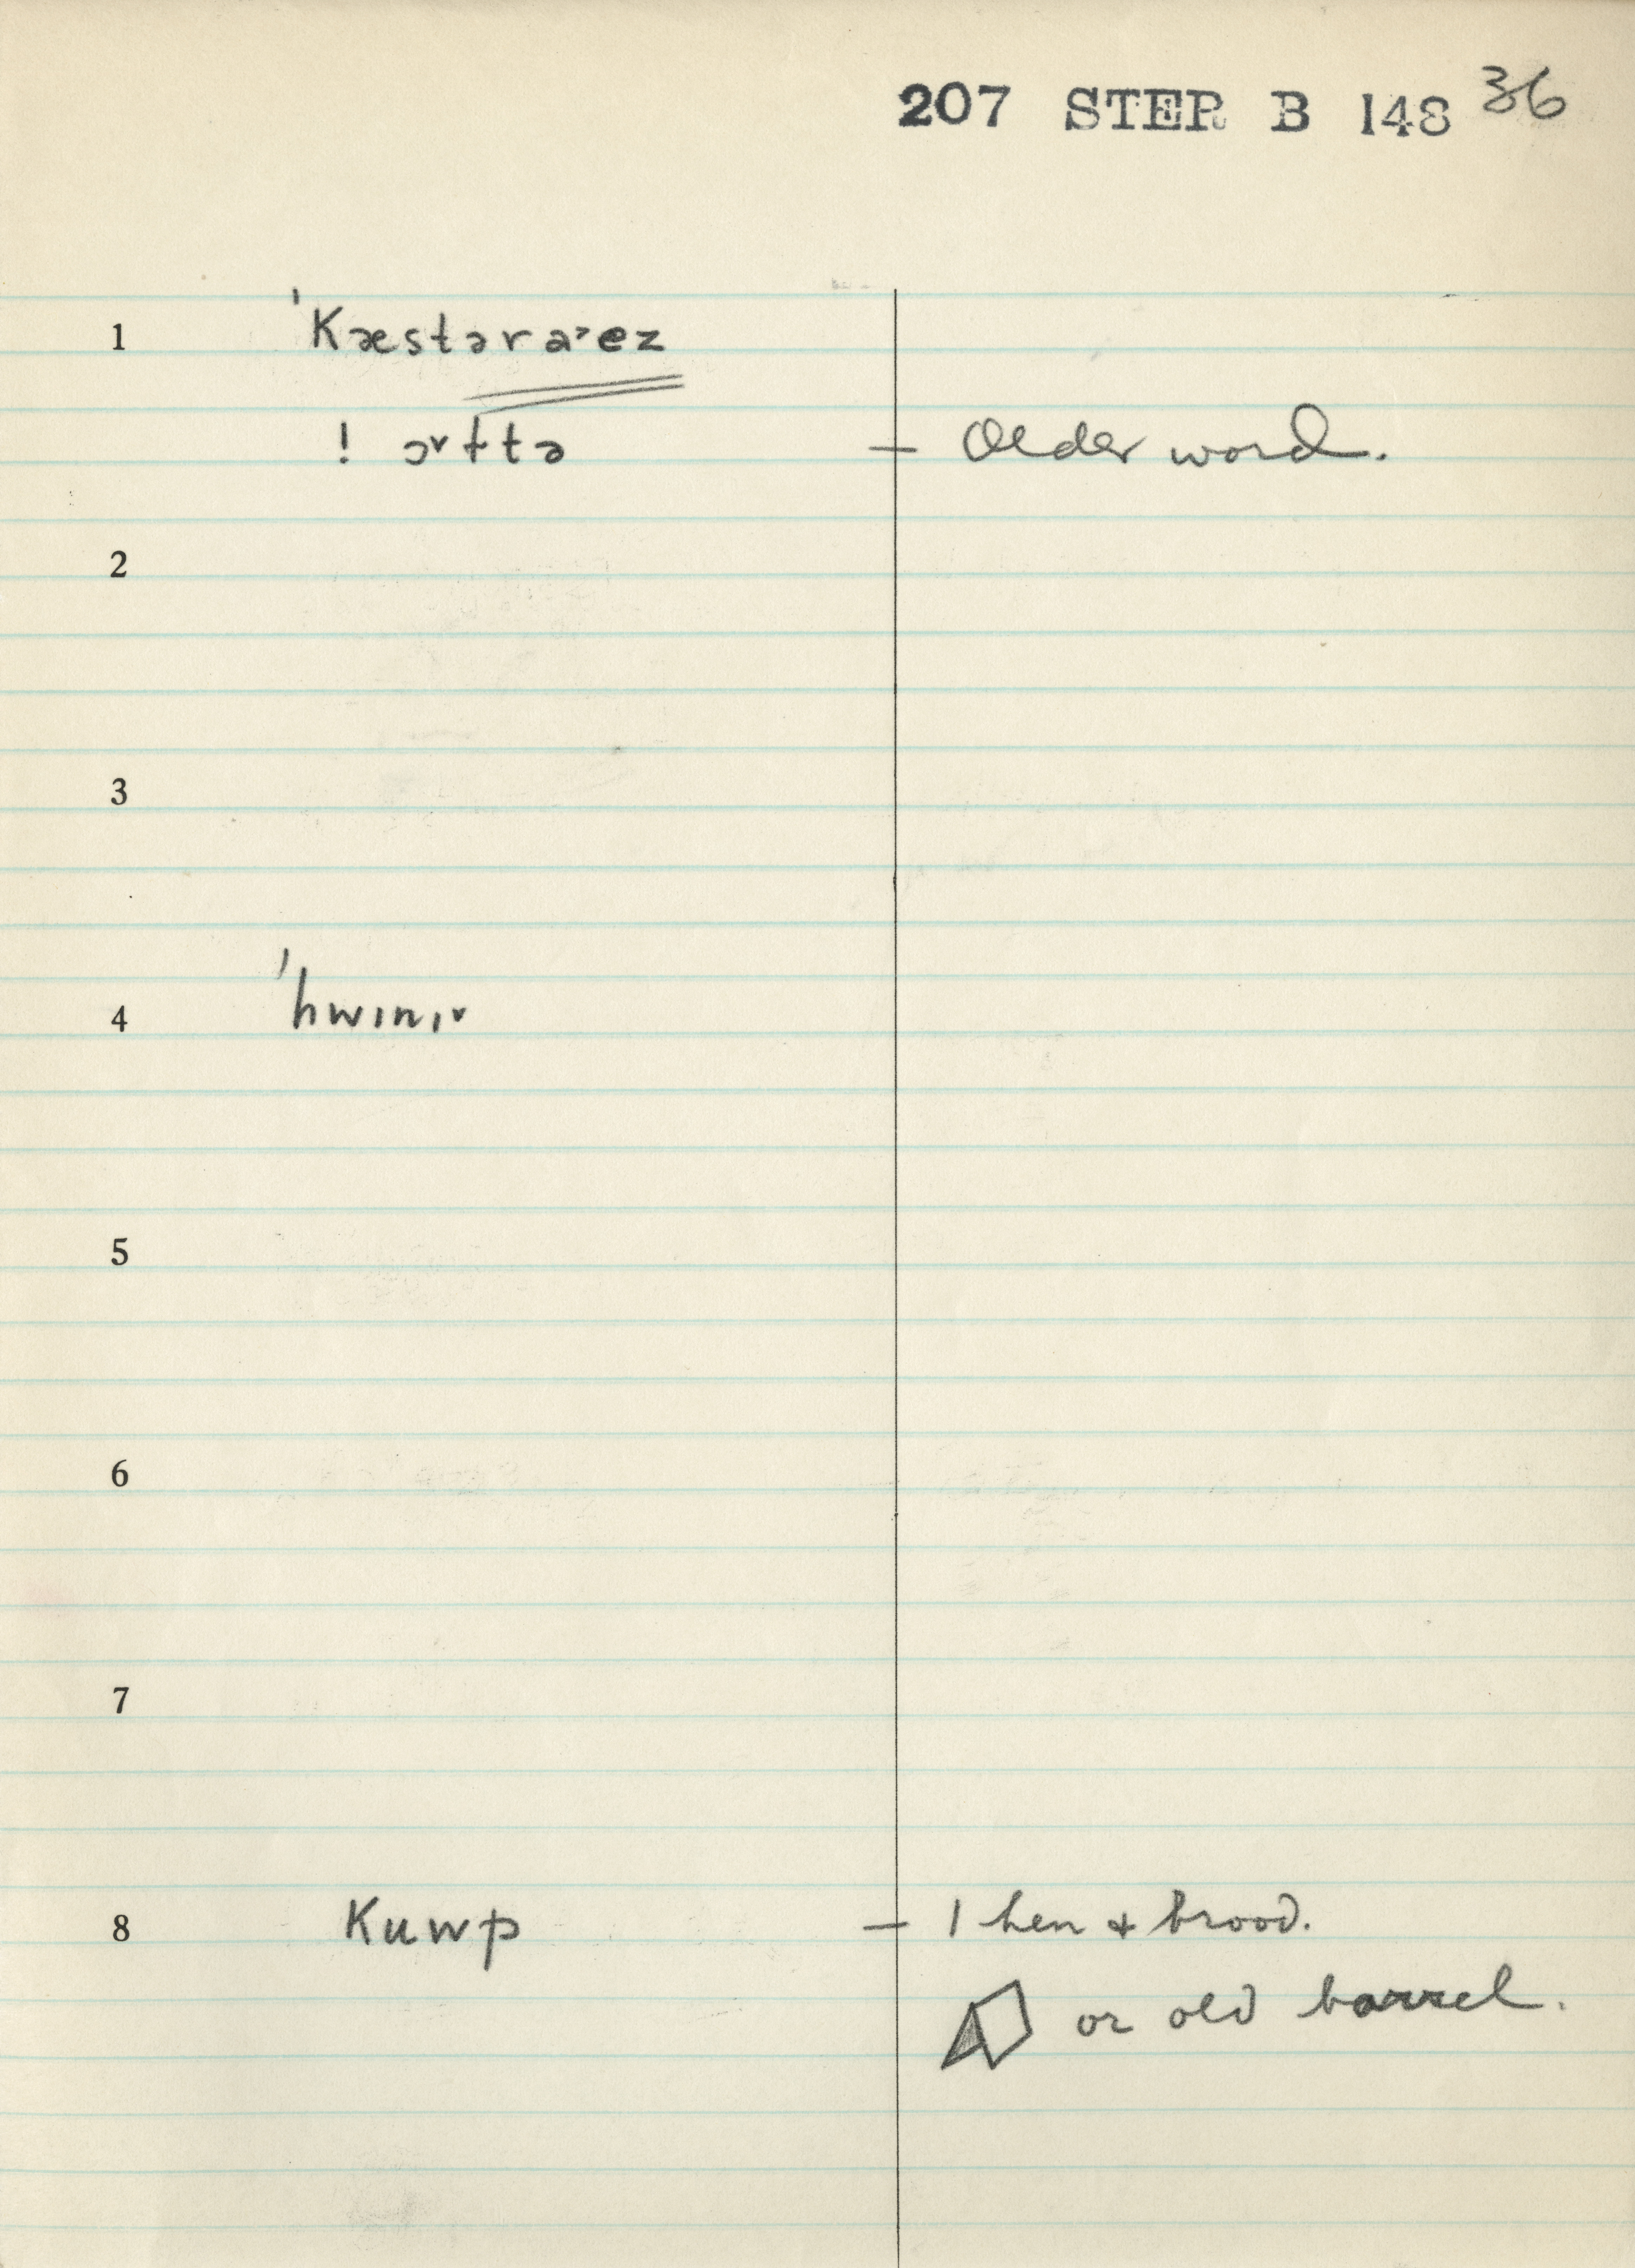 207 STER B 148 36
1 'Kæstəra˃ez
! ɔ˅ɫtə — Older word.
2
3
4 'hwɪnɪ˅
5
6
7
8 Kuwp — 1 hen & brood.
or old barrel.